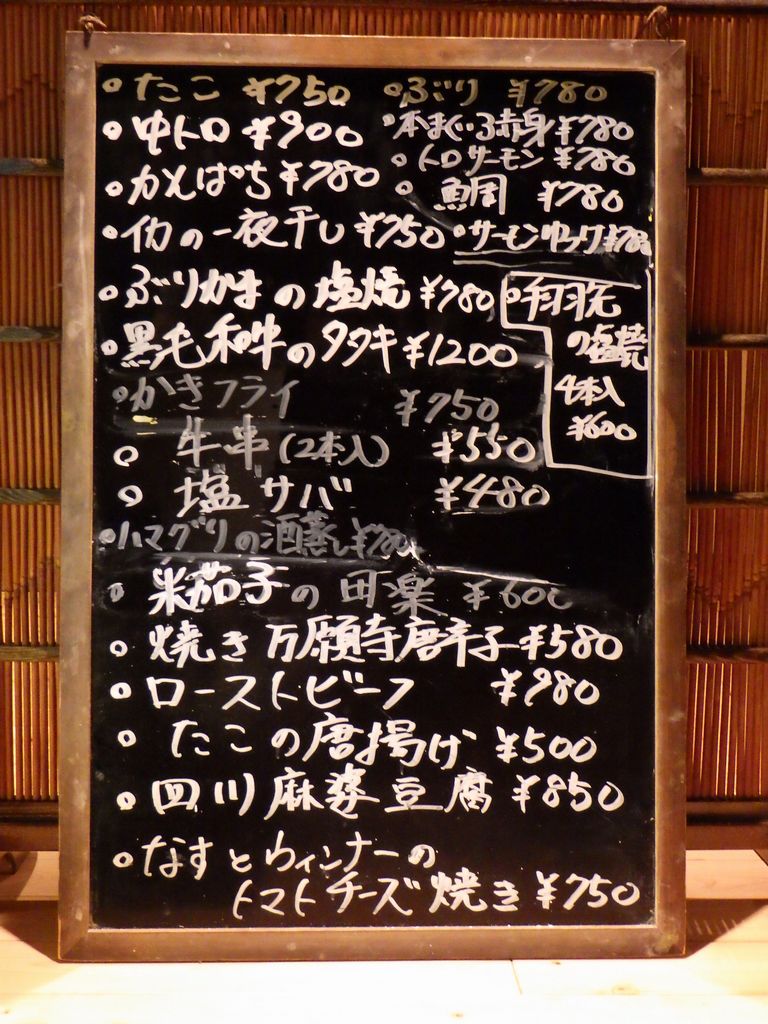 たこ ¥750
ぶり ¥780
中トロ ¥900
本まぐろ赤身 ¥780
トロサーモン ¥780
かんぱち ¥780
鯛 ¥780
イカの一夜干し ¥750
サーモンゆっけ ¥780
ぶりかまの塩焼 ¥780
手羽先
の塩焼
4本入
¥600
黒毛和牛のタタキ ¥1200
かきフライ ¥750
牛串(2本入) ¥550
塩サバ ¥480
ハマグリの酒蒸し
米茄子の田楽 ¥600
焼き万願寺唐辛子 ¥580
ローストビーフ ¥980
たこの唐揚げ ¥500
四川麻婆豆腐 ¥850
なすとウィンナーの
トマトチーズ焼き ¥750